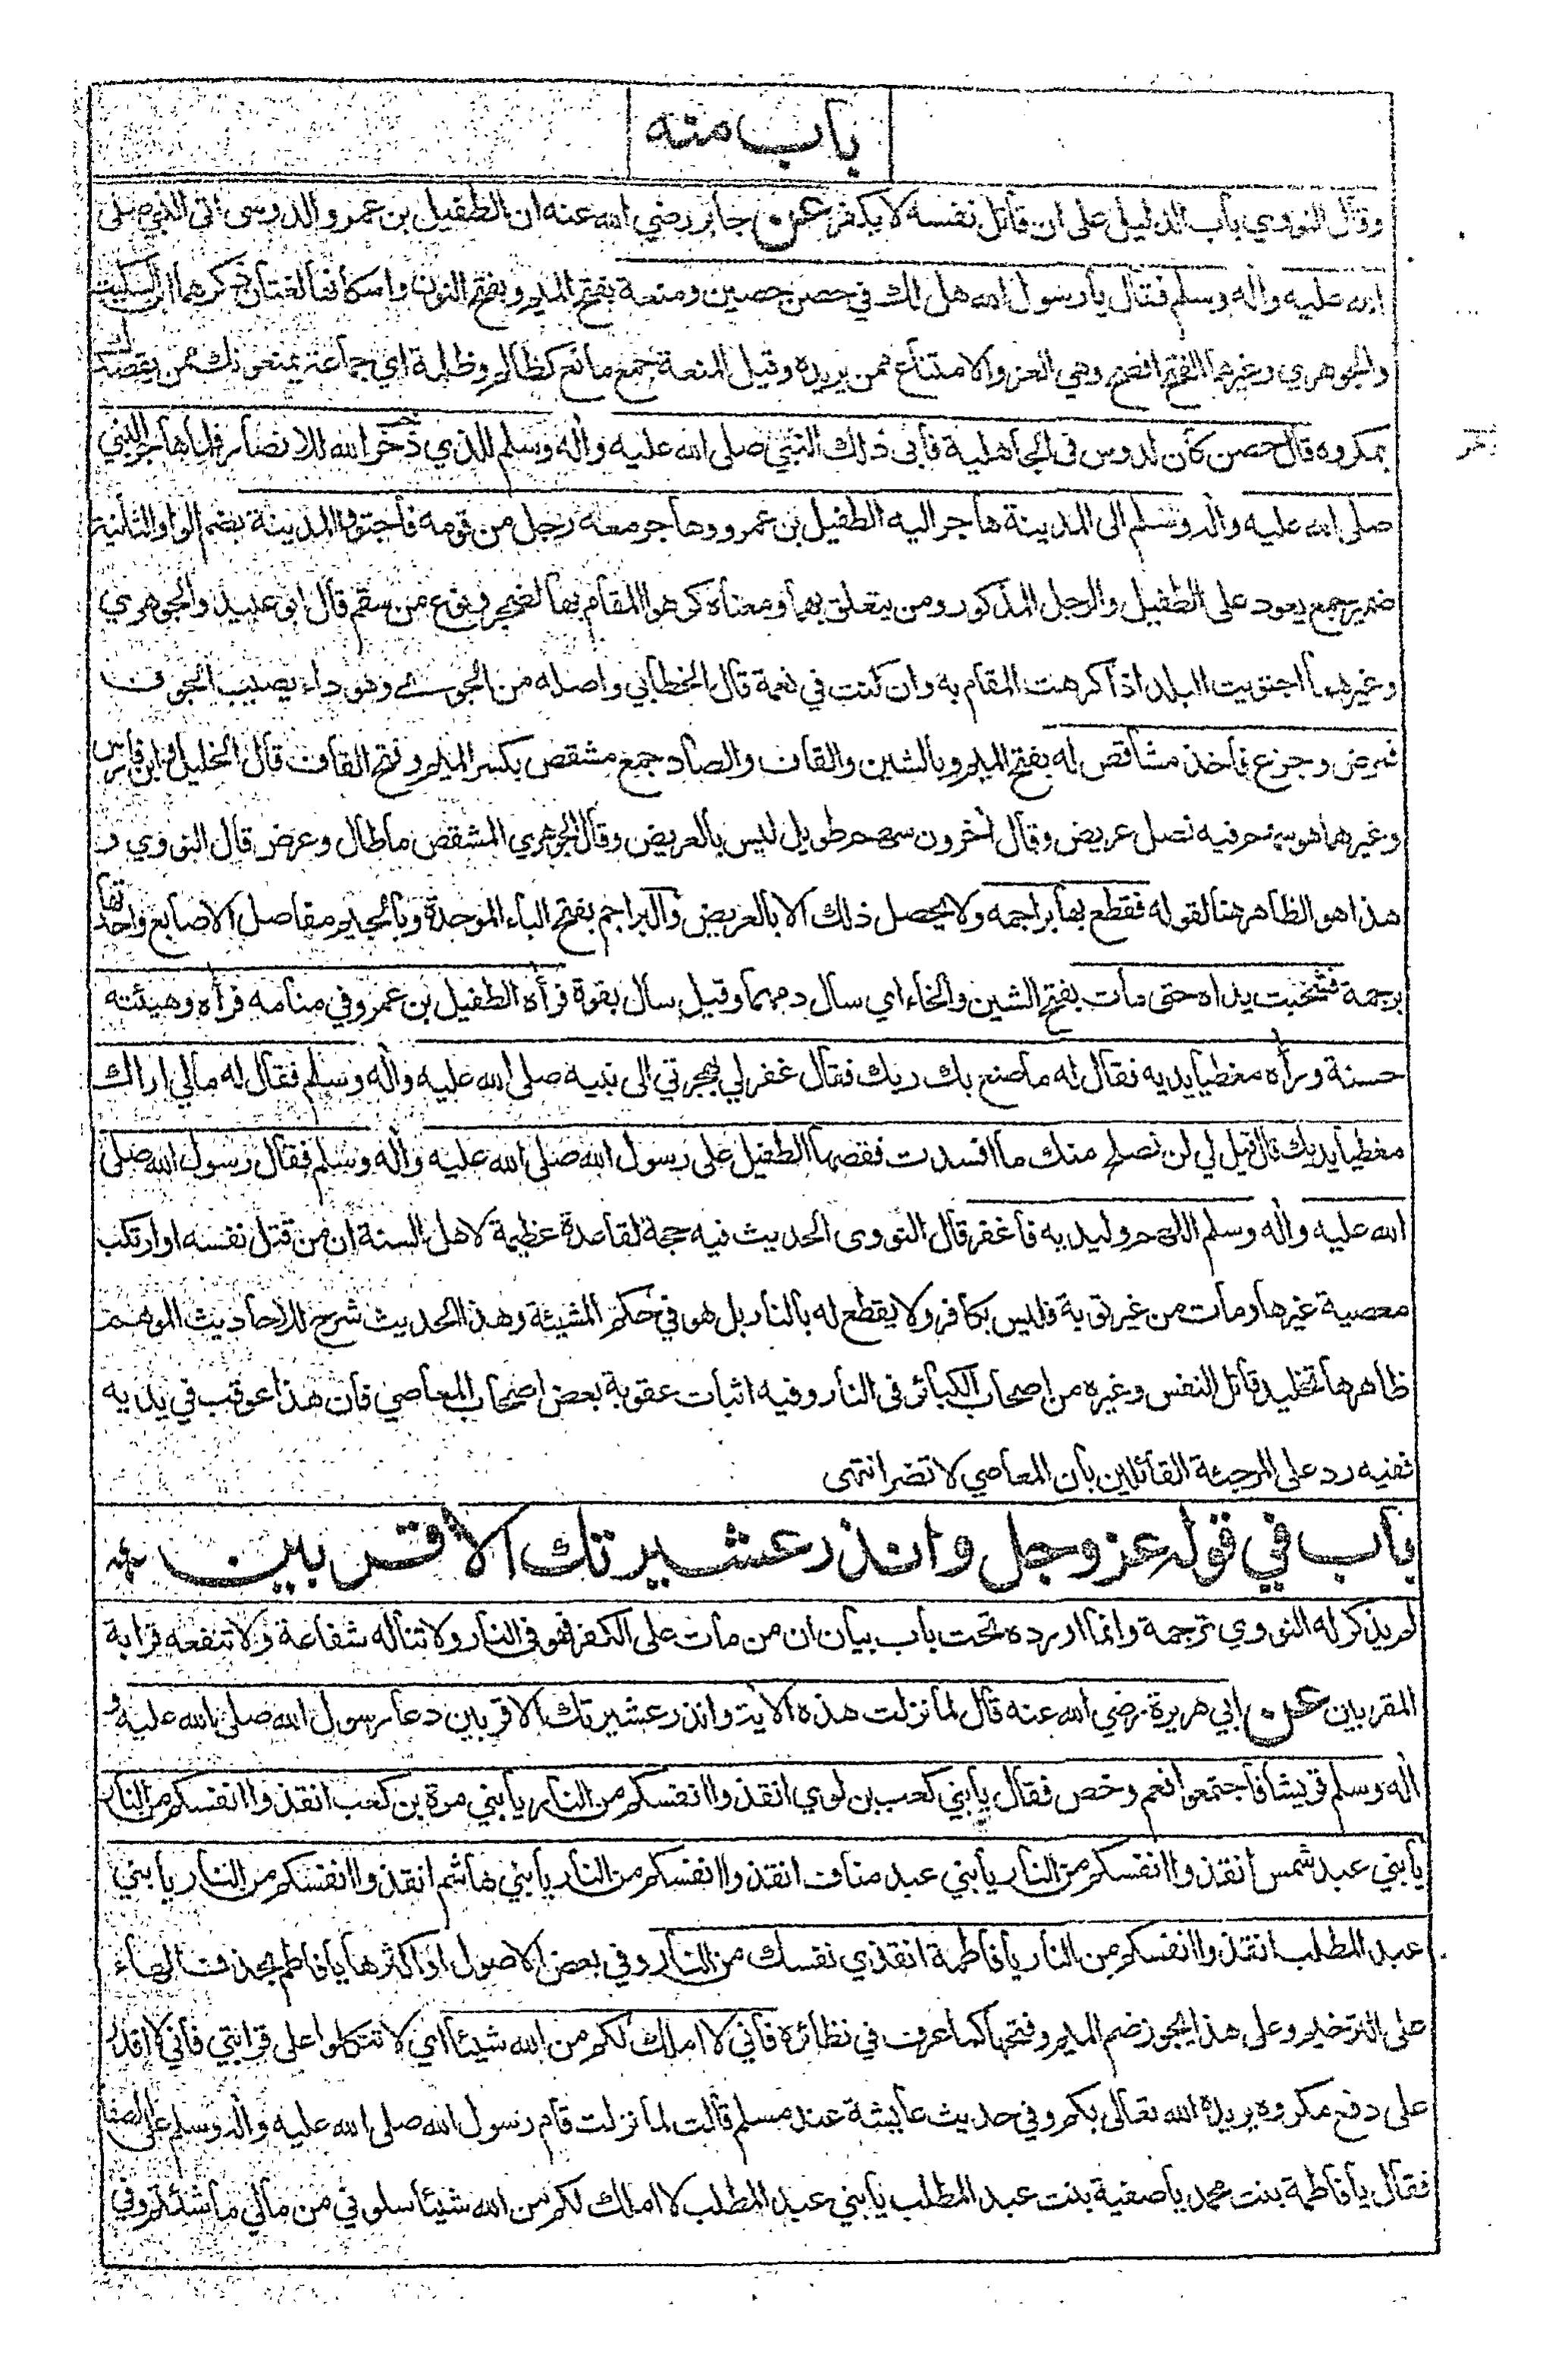 باب منه
وقال النووي باب الدليل على ان قاتل نفسه لا يكفر عن جابر رضي الله عنه ان الطفيل بن عمرو الدوسي اتى النبي صلى
الله عليه واله وسلم فقال يا رسول الله هل لك في حصن حصين ومنعة بفتح الميم وبفتح النون واسكانها لغتان ذكرهما ابن السكيت
والجوهري وغيرهما الفتح افصح وهي العز والامتناع ممن يريده وقيل المنعة جمع مانع كظالم وظلمة اي جماعة يمنعونك ممن يقصدك
بمكروه قال حصن كان لدوس في الجاهلية فأبى ذلك النبي صلى الله عليه واله وسلم للذي ذخر الله للانصار فلما هاجر النبي
صلى الله عليه واله وسلم الى المدينة هاجر اليه الطفيل بن عمرو وهاجر معه رجل من قومه فاجتووا المدينة بضم الواو الثانية
ضمير جمع يعود على الطفيل والرجل المذكور ومن يتعلق بهما ومعناه كرهوا المقام بها لضجر ونوع من سقم قال ابو عبيد والجوهري
وغيرهما اجتويت البلد اذا كرهت المقام به وان كنت في نعمة قال الخطابي واصله من الجوى وهو داء يصيب الجوف
فمرض وجزع فأخذ مشاقص له بفتح الميم وبالشين والقاف والصاد جمع مشقص بكسر الميم وفتح القاف قال الخليل وابن فارس
وغيرهما هو سهم فيه نصل عريض وقال اخرون سهم طويل ليس بالعريض وقال الجوهري المشقص ما طال وعرض قال النووي و
هذا هو الظاهر هنا لقوله فقطع بها براجمه ولا يحصل ذلك الا بالعريض والبراجم بفتح الباء الموحدة وبالجيم مفاصل الاصابع واحدتها
برجمة فشخبت يداه حتى مات بفتح الشين والخاء اي سال دمهما وقيل سال بقوة فرأه الطفيل بن عمرو في منامه فرأه وهيئته
حسنة ورأه مغطيا يديه فقال له ما صنع بك ربك فقال غفر لي بهجرتي الى نبيه صلى الله عليه واله وسلم فقال له مالي اراك
مغطيا يديك قال قيل لي لن نصلح منك ما افسدت فقصها الطفيل على رسول الله صلى الله عليه واله وسلم فقال رسول الله صلى
الله عليه واله وسلم اللهم وليديه فاغفر قال النووي الحديث فيه حجة لقاعدة عظيمة لاهل السنة ان من قتل نفسه او ارتكب
معصية غيرها ومات من غير توبة فليس بكافر ولا يقطع له بالنار بل هو في حكم المشيئة وهذا الحديث شرح للاحاديث الموهم
ظاهرها تخليد قاتل النفس وغيره من اصحاب الكبائر في النار وفيه اثبات عقوبة بعض اصحاب المعاصي فان هذا عوقب في يديه
ففيه رد على المرجئة القائلين بان المعاصي لا تضر انتهى
باب في قوله عز وجل وانذر عشيرتك الاقربين
لم يذكر له النووي ترجمة وانما اورده تحت باب بيان ان من مات على الكفر فهو في النار ولا تناله شفاعة ولا تنفعه قرابة
المقربين عن ابي هريرة رضي الله عنه قال لما نزلت هذه الاية وانذر عشيرتك الاقربين دعا رسول الله صلى الله عليه و
اله وسلم قريشا فاجتمعوا فعم وخص فقال يا بني كعب بن لوي انقذوا انفسكم من النار يا بني مرة بن كعب انقذوا انفسكم من النار
يا بني عبد شمس انقذوا انفسكم من النار يا بني عبد مناف انقذوا انفسكم من النار يا بني هاشم انقذوا انفسكم من النار يا بني
عبد المطلب انقذوا انفسكم من النار يا فاطمة انقذي نفسك من النار وفي بعض الاصول او اكثرها يا فاطم بحذف الهاء
على الترخيم وعلى هذا يجوز ضم الميم وفتحها كما عرف في نظائره فاني لا املك لكم من الله شيئا اي لا تتكلوا على قرابتي فاني لا اقدر
على دفع مكروه يريده الله تعالى بكم وفي حديث عايشة عند مسلم قالت لما نزلت قام رسول الله صلى الله عليه واله وسلم على الصفا
فقال يا فاطمة بنت محمد يا صفية بنت عبد المطلب يا بني عبد المطلب لا املك لكم من الله شيئا سلوني من مالي ما شئتم وفي